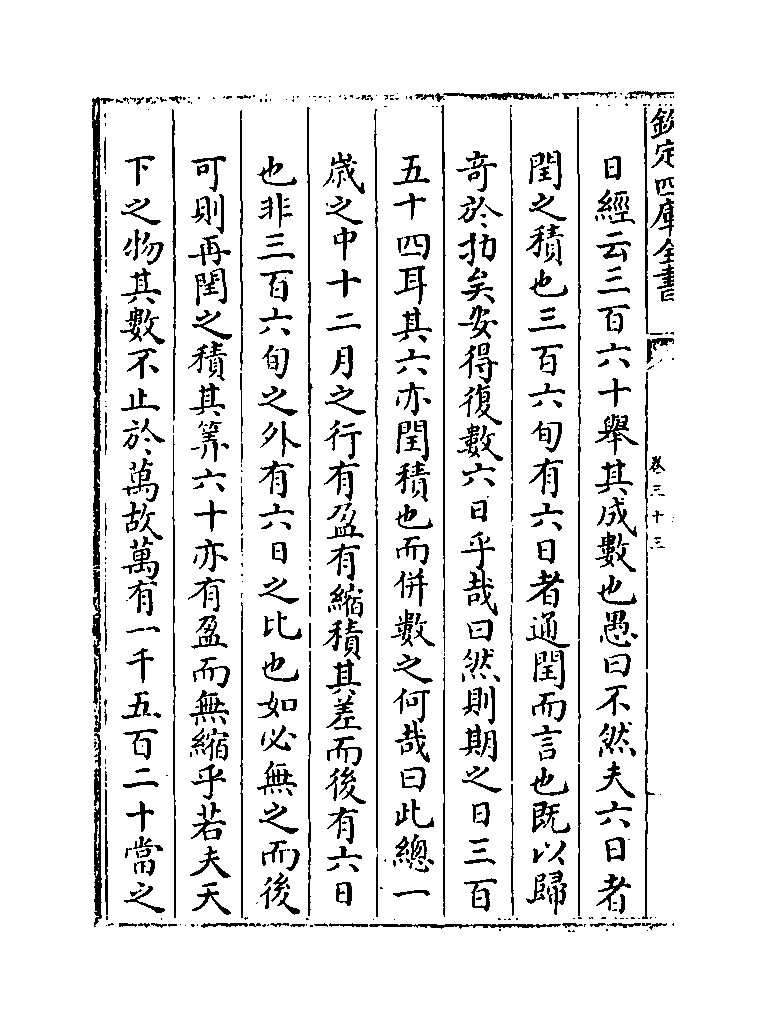 欽定四庫全書
卷三十三
日經云三百六十舉其成數也愚曰不然夫六日者
閏之積也三百六旬有六日者通閏而言也既以歸
奇於扐矣安得復數六日乎哉曰然則期之日三百
五十四耳其六亦閏積也而併數之何哉曰此總一
歲之中十二月之行有盈有縮積其差而後有六日
也非三百六旬之外有六日之比也如必無之而後
可則再閏之積其筭六十亦有盈而無縮乎若夫天
下之物其數不止於萬故萬有一千五百二十當之